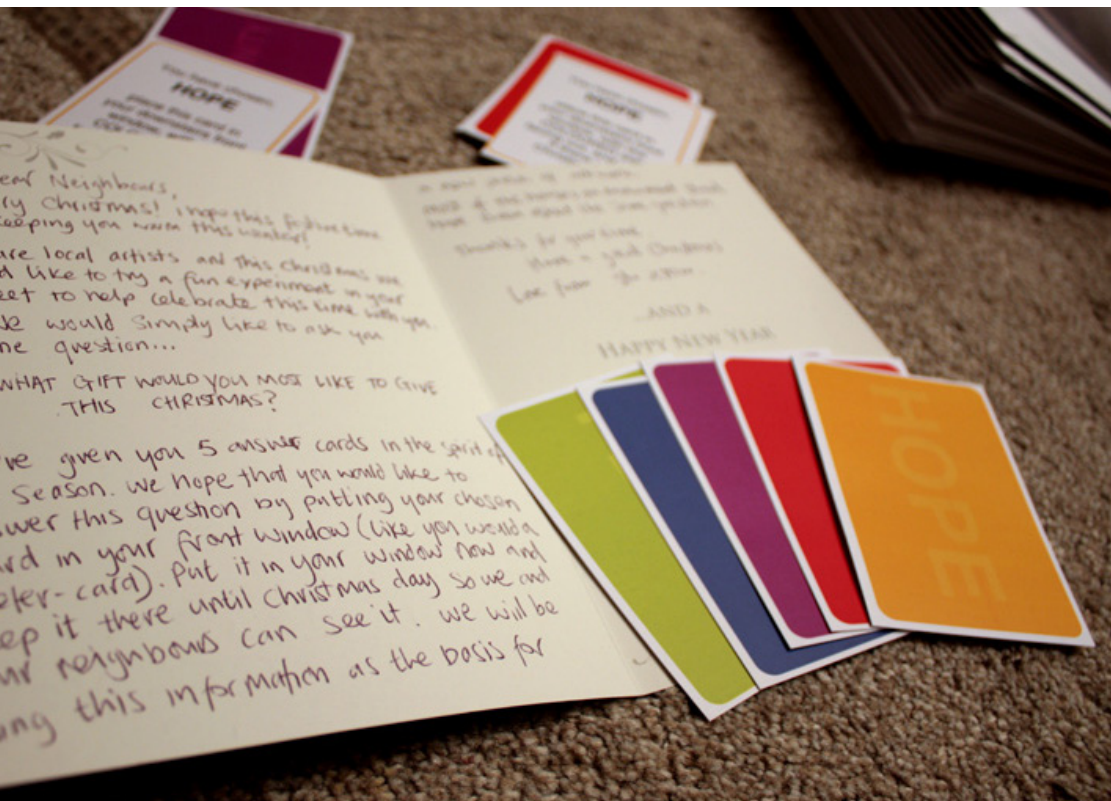 You have chosen:
HOPE
place this card in
your downstairs front
HOPE
ear Neighbours,
ry Christmas! i hope this festive time
keeping you warm this winter!
are local artists and this Christmas we
d like to try a fun experiment on your
eet to help celebrate this time with you.
e would simply like to ask you
ne question...
WHAT GIFT WOULD YOU MOST LIKE TO GIVE
THIS CHRISTMAS?
ve given you 5 answer cards in the spirit of
season. We hope that you would like to
wer this question by putting your chosen
rd in your front window (like you would a
ter-card). Put it in your window now and
ep it there until Christmas day so we and
ur neighbours can see it. we will be
ing this information as the basis for
a new piece of
most of the
Thanks for your time
Have a great Christmas
Love from
...AND A
HAPPY NEW YEAR
HOPE